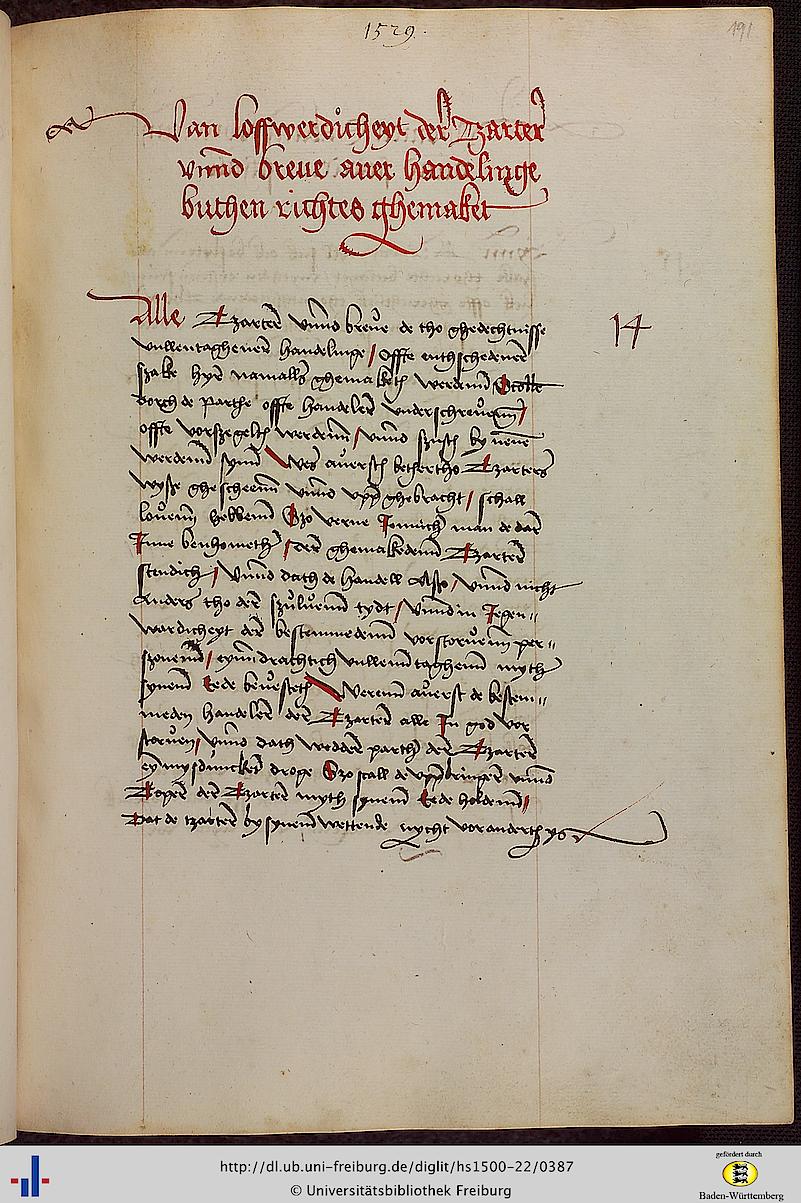 1529.
191
Van loffwerdicheyt der Tzarter
vnnd breue auer handelinge
buthen richtes ghemaket
14
Alle Tzarter vnnd breue de tho ghedechtnisse
vullentaghener handelinge / offte enthschedener
szake hyr namalls ghemaketh werdenn Scolle
dorch de parthe offte handeler vnderschreuenn /
offte vorszegelth werdenn / vnnd szusth by
werdenn synn Wes auersth bethertho Tzarters
wysze ghescheenn vnnd vpp ghebracht / schall
louenn hebbenn Szo verne Jennich man de dar
Jnne benhometh / der ghemakedenn Tzarter
stendich / vnnd dath de handell Alszo / vnnd nicht
Anders tho der szuluenn tydt / vnnd in Jegen-
wardicheyt der bestemmedenn vorstoruenn per-
szonenn / eyndrachtich vullenntaghenn myth
synem Eede beuesteth Werenn auerst de bestem-
meden handeler der Tzarter alle In god vor
storuen / vnnd dath wedder parth der Tzarter
eyn mysduncken droge Szo scall de vppbringer vnnd
der Tzarter myth synem Eede holdenn /
Dat de tzarter by synem wettende nycht voranderth ys
http://dl.ub.uni-freiburg.de/diglit/hs1500-22/0387
© Universitätsbibliothek Freiburg
gefördert durch
Baden-Württemberg